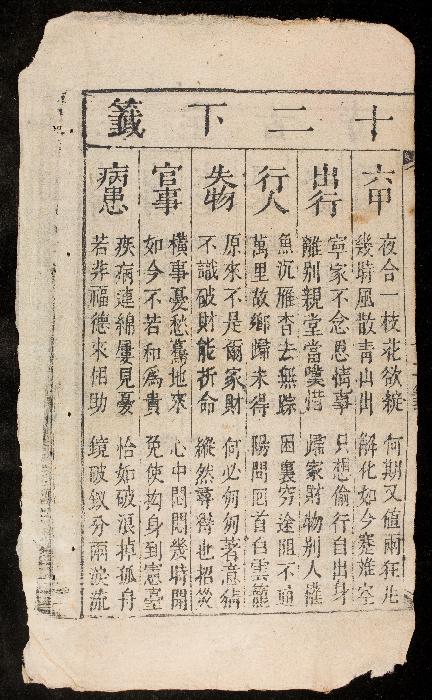 十二下籤
六甲
夜合一枝花欲綻 何期又值雨狂
幾時風散青山出 解化如今蹇難
出行
寧家不念恩情事 只想偷行自出身
離別親堂當嘆惜 歸家財物別人
行人
魚沉雁杳去無踪 困裏窮途阻不通
萬里故鄉歸未得 陽問回首白雲
失物
原來不是爾家財 何必匆匆著意猜
不識破財能折命 縱然尋得也招災
官事
橫事憂愁驀地來 心中悶悶幾時開
如今不若和為貴 免使拘身到憲臺
病患
疾病連綿屢見憂 恰如破浪掉孤舟
若非福德來相助 鏡破釵分兩淚流